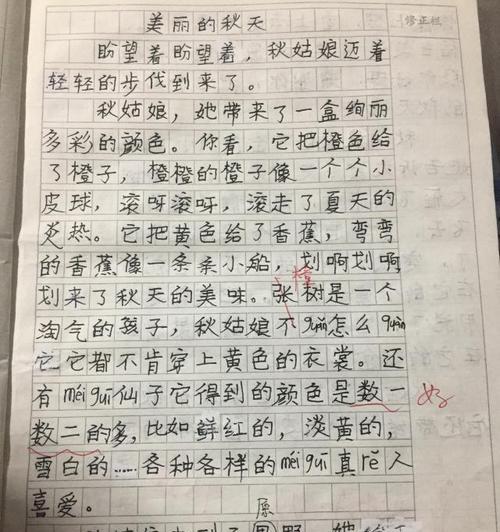 美丽的秋天
修正栏
盼望着盼望着，秋姑娘迈着
轻轻的步伐到来了。
秋姑娘，她带来了一盒绚丽
多彩的颜色。你看，它把橙色给
了橙子，橙橙的橙子像一个个小
皮球，滚呀滚呀，滚走了夏天的
炎热。它把黄色给了香蕉，弯弯
的香蕉像一条亲小船，划啊划啊，
樟
划来了秋天的美味。张树是一个
淘气的孩子，秋姑娘不guǎn怎么quàn
它它都不肯穿上黄色的衣裳。还
有méi guī仙子它得到的颜色是数一
好
数二的多，比如鲜红的，淡黄的，
雪白的……各种各样的méi guī真rě人
喜爱。
原